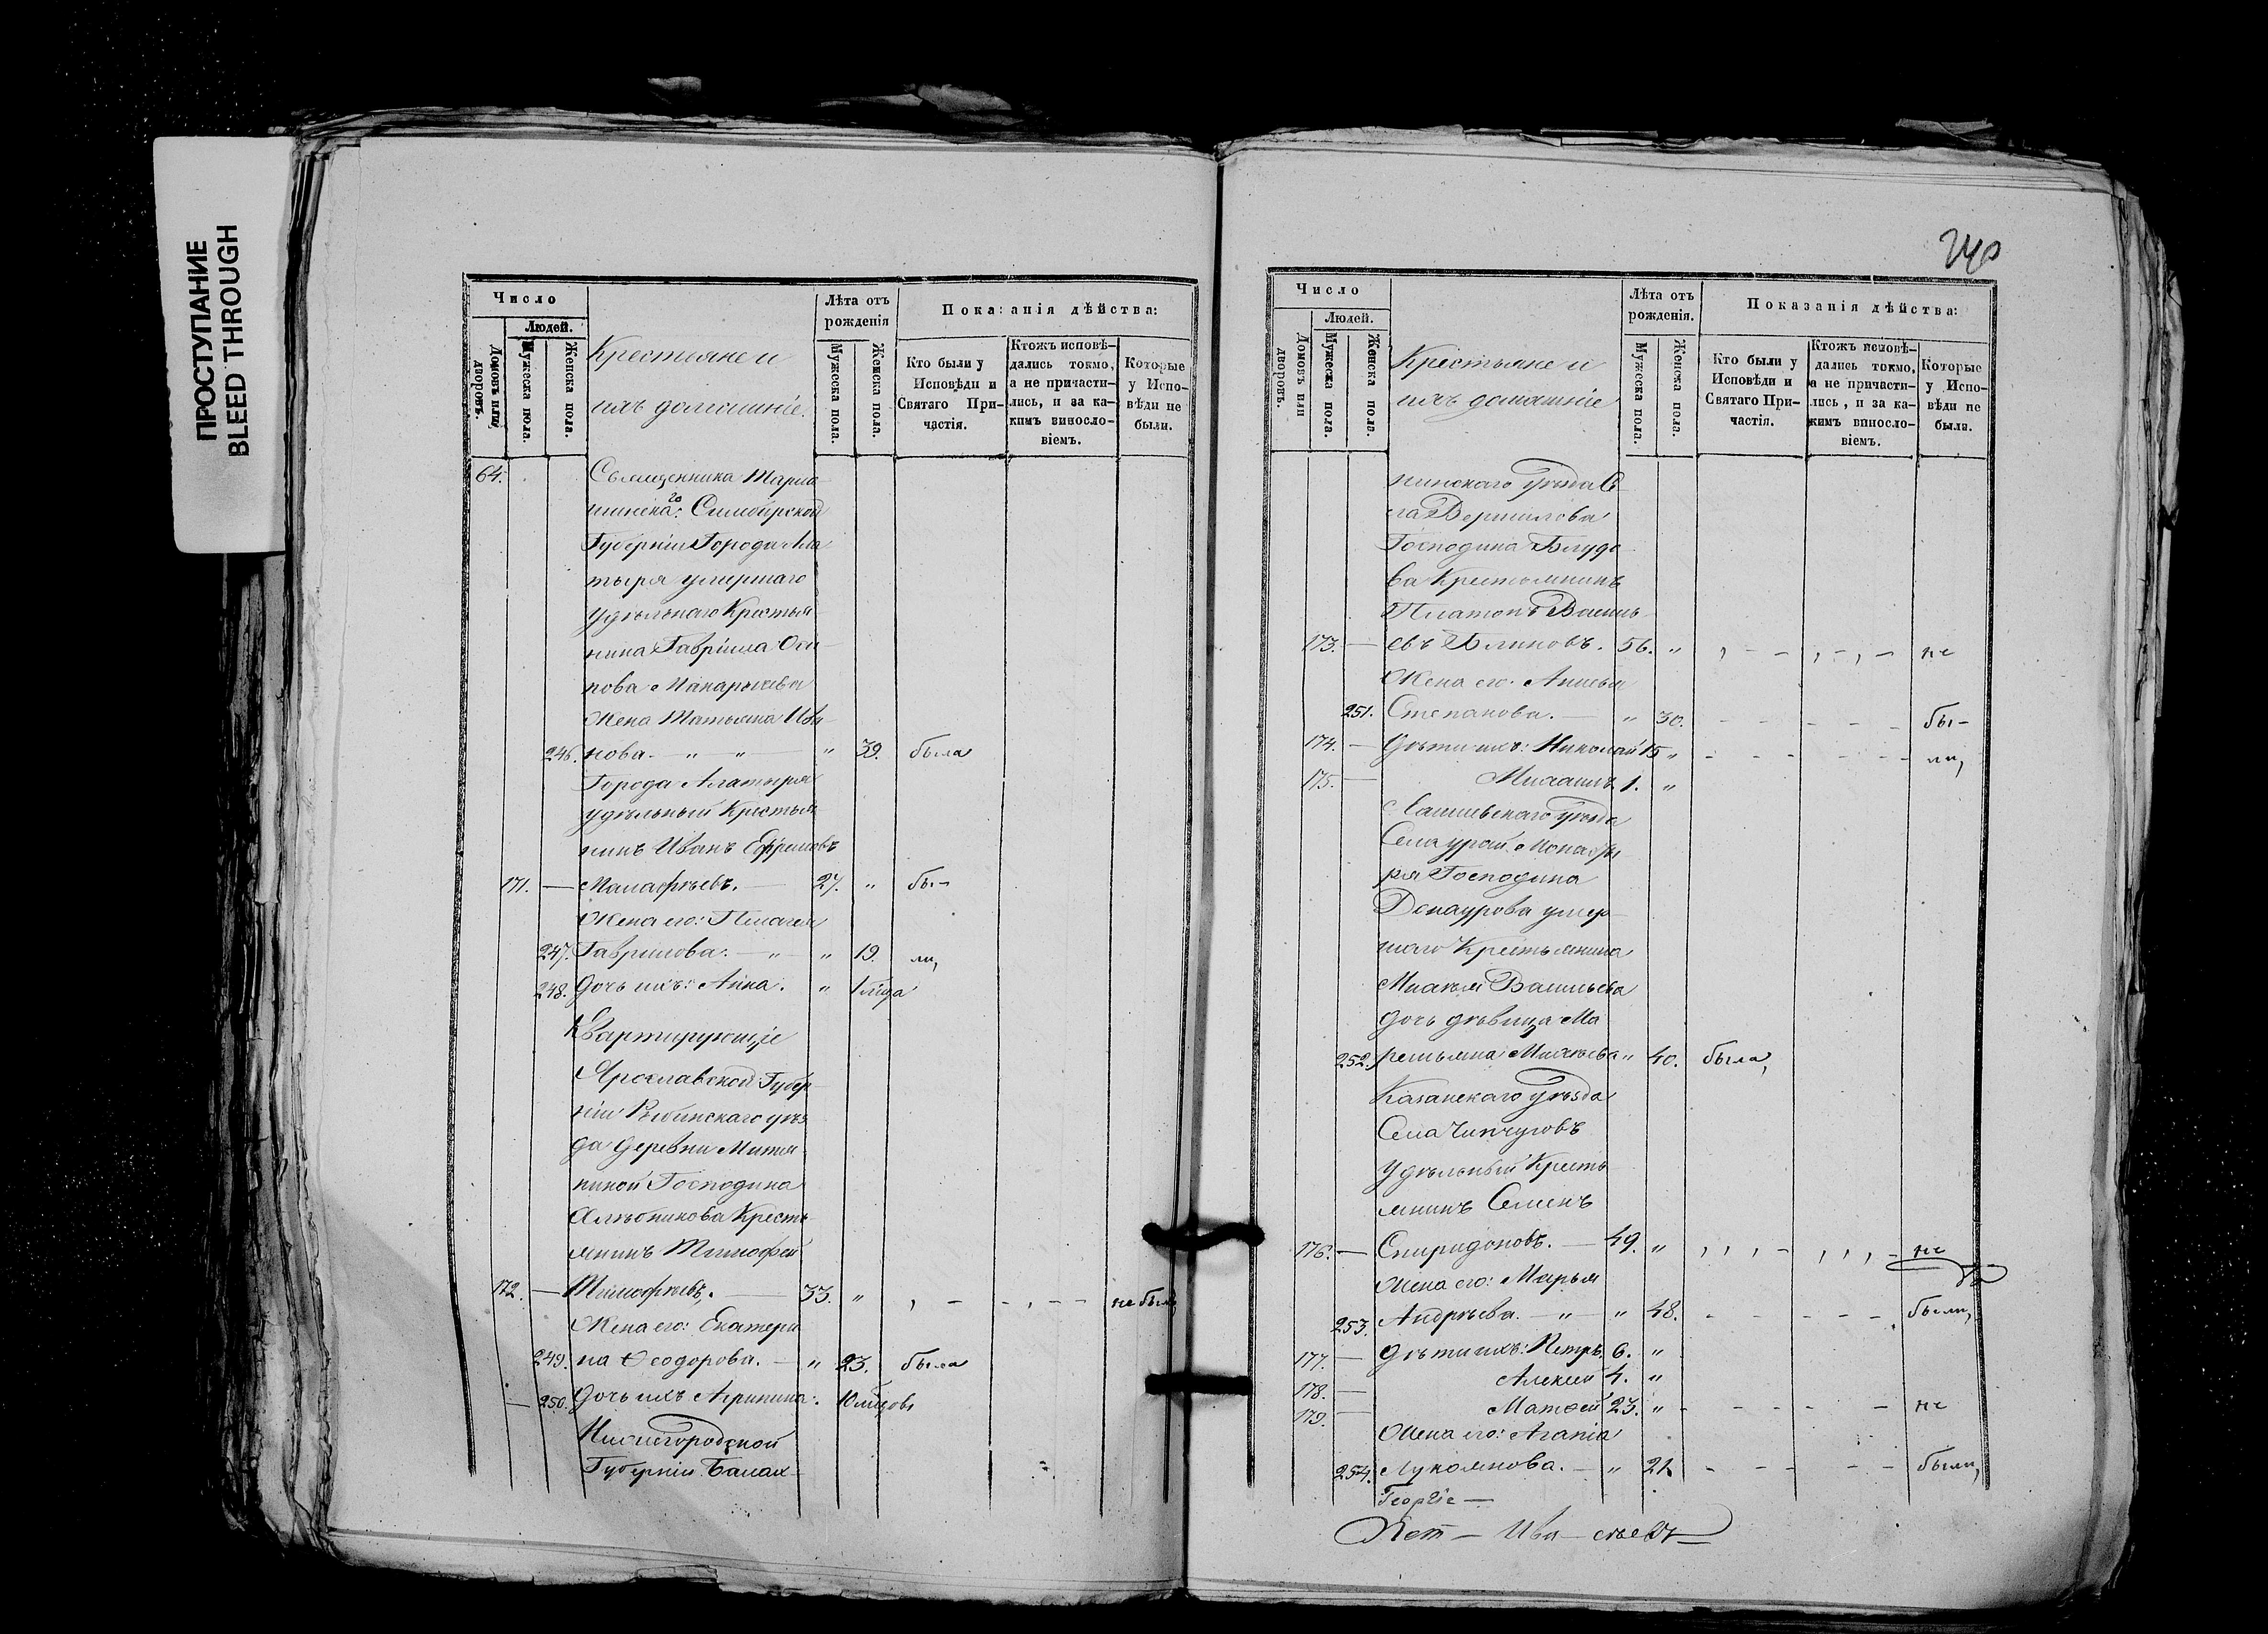 ПРОСТУПАНИЕ
BLEED THROUGH
Число
Людей.
Домовъ или дворовъ.
Мужеска пола.
Женска пола.
Крестьяне и
ихъ домашніе.
Лѣта отъ
рожденія
Мужеска пола.
Женска пола.
Показанія дѣйства:
Кто были у
Исповѣди и
Святаго При-
частія.
Ктожъ исповѣ-
дались токмо,
а не причасти-
лись, и за ка-
кимъ виносло-
віемъ.
Которые
у Испо-
вѣди не
были.
64. Священника
Симбирской
Губерніи Города Ала
тыря умершаго
удѣльнаго Крестья
нина Гавріила Оси
пова Макарычева
Жена Татьяна Ива
246. нова. — „ „ — „ 39. была
Города Алатыря
удѣльный Крестья
нинъ Иванъ Ефремовъ
171. — Малафѣевъ. — 27. „ бы-
Жена его: Пелагея
247. Гаврилова. — „ „ 19. ли,
248. Дочь ихъ: Анна. „ 1 года
Квартирующіе
Ярославской Губер
ніи Рыбинскаго уѣз
да деревни Митя
киной Господина
Кресть
янинъ Тимофей
172. — Тимофѣевъ. — 33. „ , — — , — — не былъ
Жена его: Екатери
249. на Ѳеодорова. — „ 23. была
— 250. Дочь ихъ Агрипина.
Нижегородской
Губерніи Балах-
240
Число
Людей.
Домовъ или дворовъ.
Мужеска пола.
Женска пола.
Крестьяне и
ихъ домашніе
Лѣта отъ
рожденія.
Мужеска пола.
Женска пола.
Показанія дѣйства:
Кто были у
Исповѣди и
Святаго При-
частія.
Ктожъ исповѣ-
дались токмо,
а не причасти-
лись, и за ка-
кимъ виносло-
віемъ.
Которые
у Испо-
вѣди не
были.
нинскаго уѣзда Се
ла Вершилова
Господина Блудо
ва Крестьянинъ
Платонъ Василь
173. — евъ Блиновъ. 56. „ , — — , — , — не
Жена его: Анисья
251. Степанова. — „ 30. - - - - - бы-
174. — Дѣти ихъ: Николай 15 „ - - - - - ли,
175. — Михаилъ 1. „
Лаишевскаго уѣзда
Села Урай Монасты
ря Господина
Депаурова умер
шаго Крестьянина
Михѣя Васильева
дочь дѣвица Ма
252. ремьяна Михѣева „ 40. была,
Казанскаго уѣзда
Села Чипчуговъ
удѣльный Кресть
янинъ Семенъ
176. — Спиридоновъ. — 49. „ , , , - , , , - не
Жена его: Марья
253. Андрѣева. — „ „ 48. - - - - - были,
177. — Дѣти ихъ: Петръ. 6. „
178. — Алексѣй 4. „
179. — Матѳей 23. „ - - - - - не
Жена его: Агапія
254. Лукоянова. — „ 21 - - - - - были,
Георгіе —
Ива —